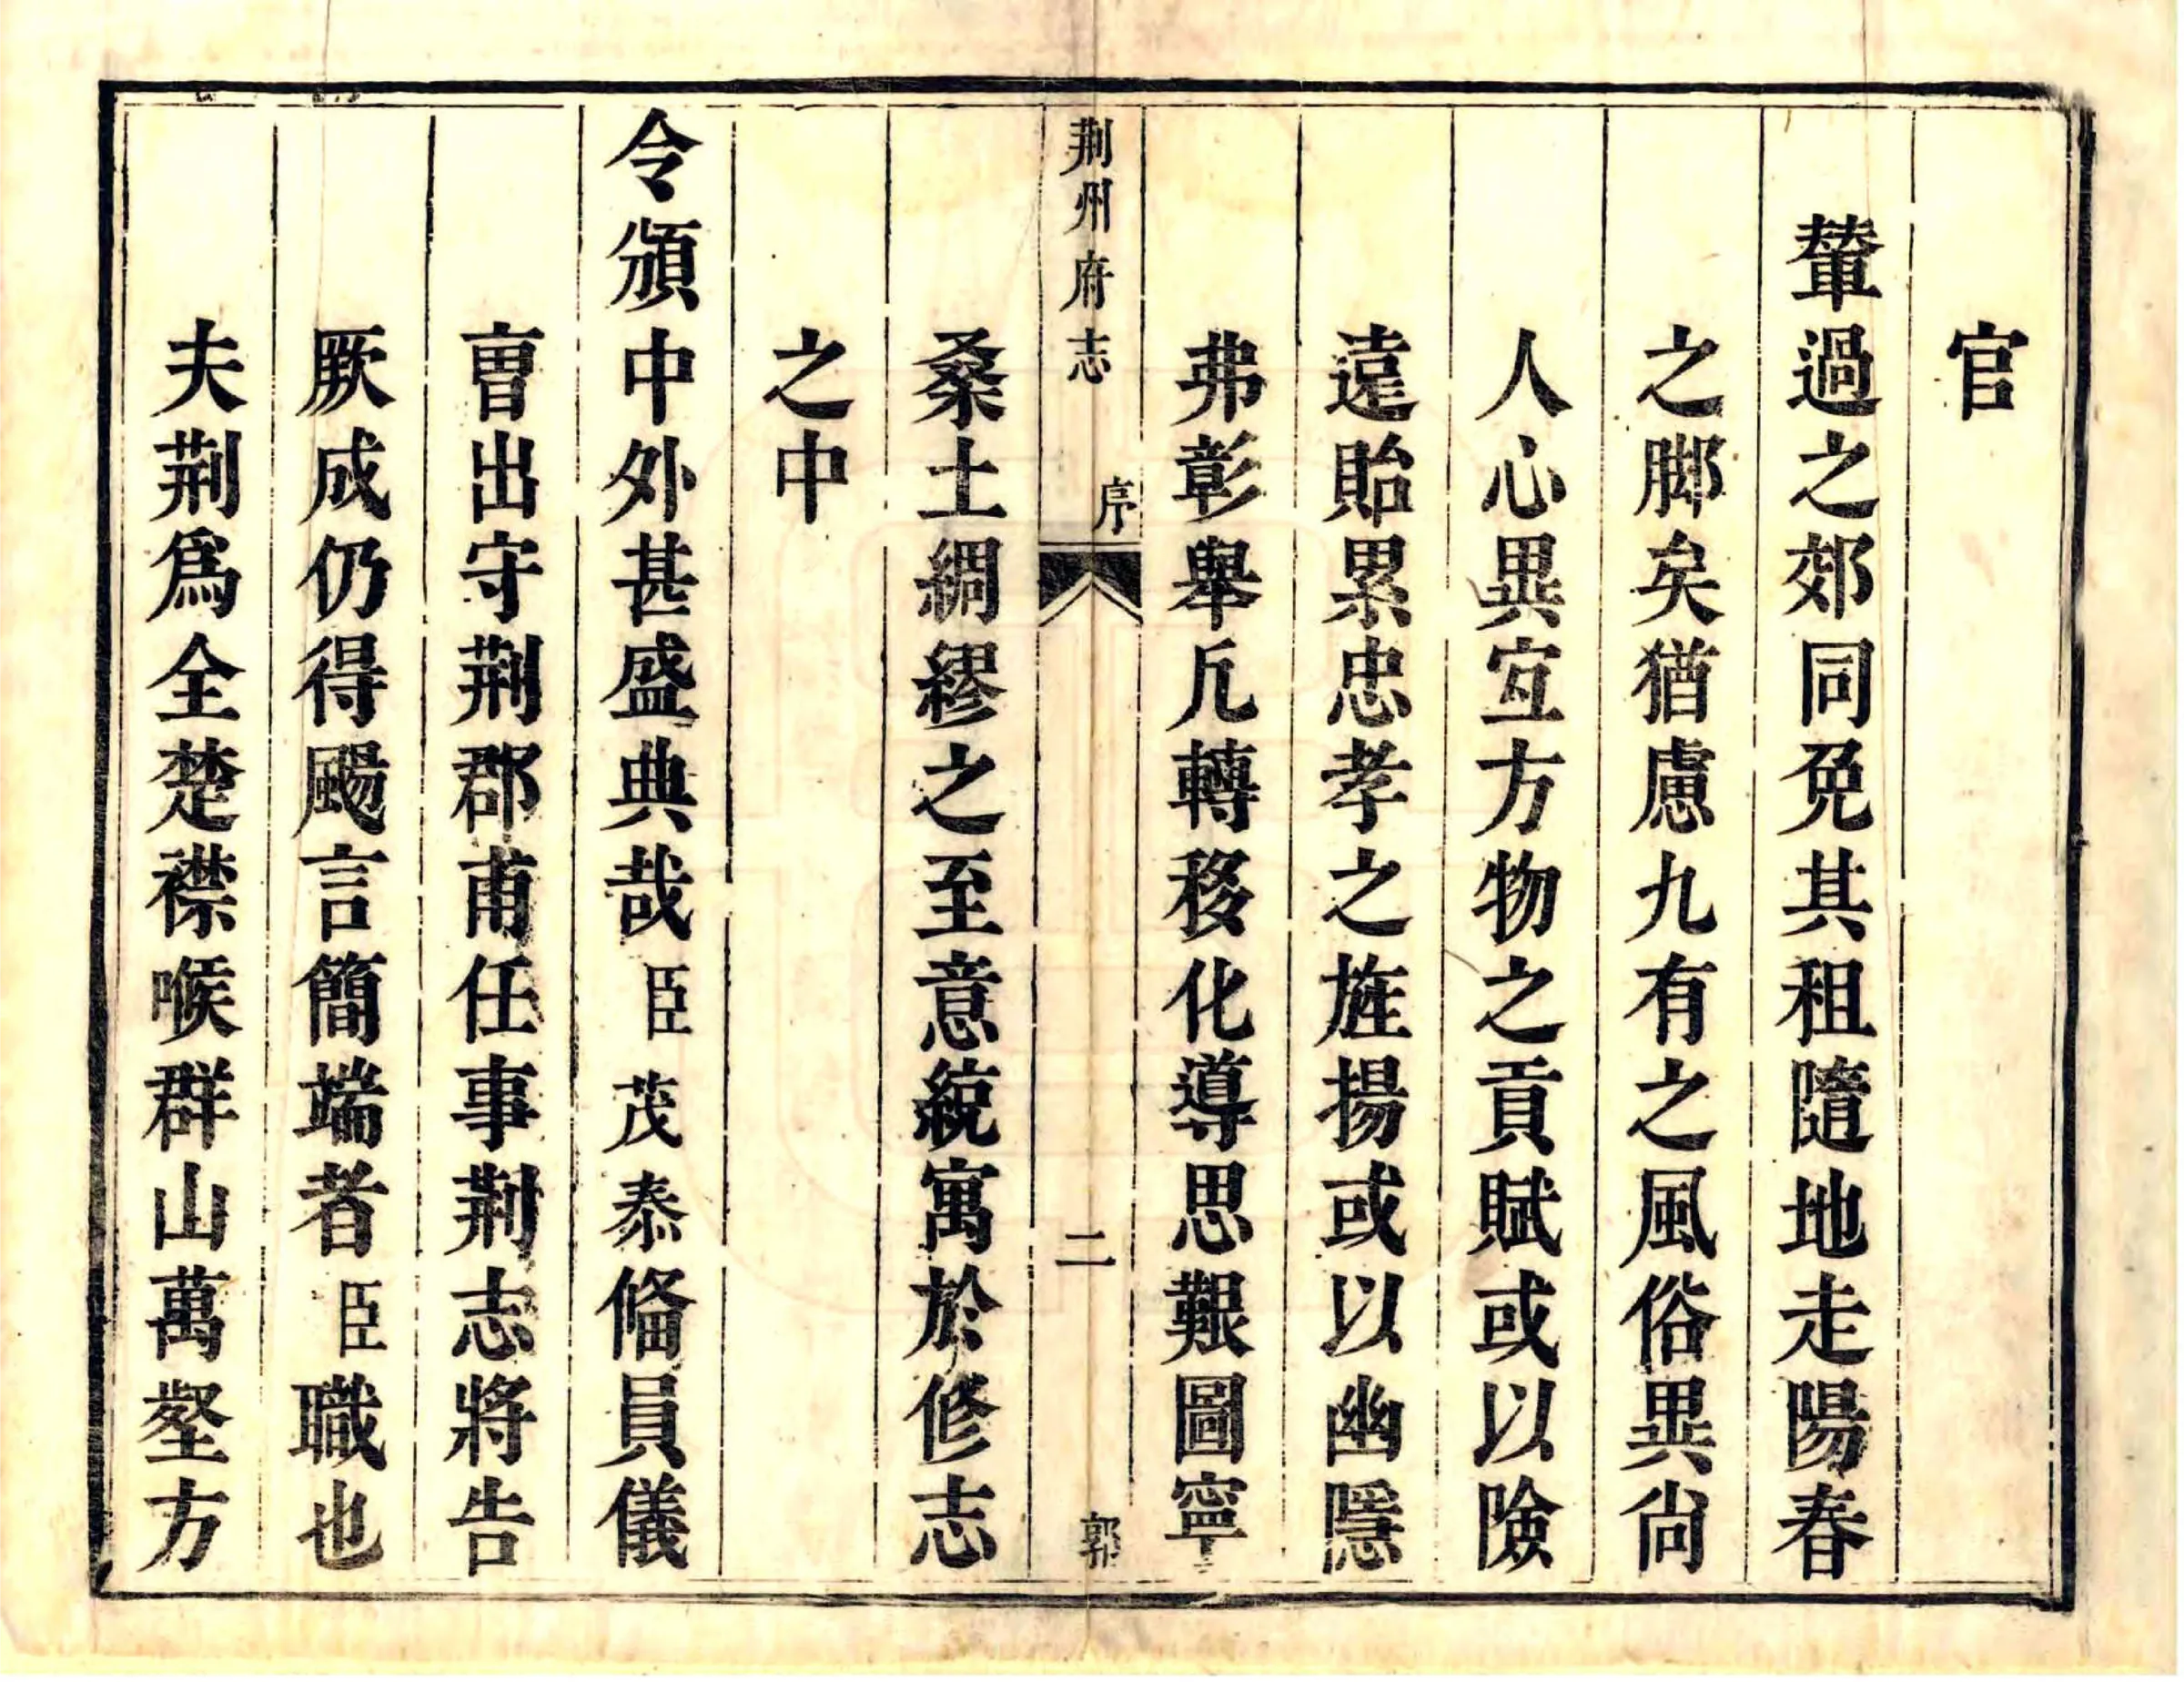 官
輦過之郊同免其租隨地走陽春
之脚矣猶慮九有之風俗異尚
人心異宐方物之貢賦或以險
遠貽累忠孝之旌揚或以幽隱
弗彰舉凢轉移化導思艱圖寧
荆州府志 序 二 郭
桑土綢繆之至意統寓於修志
之中
令頒中外甚盛典哉臣茂泰偹員儀
曹出守荆郡甫任事荆志將告
厥成仍得颺言簡端者臣職也
夫荆爲全楚襟喉群山萬壑方